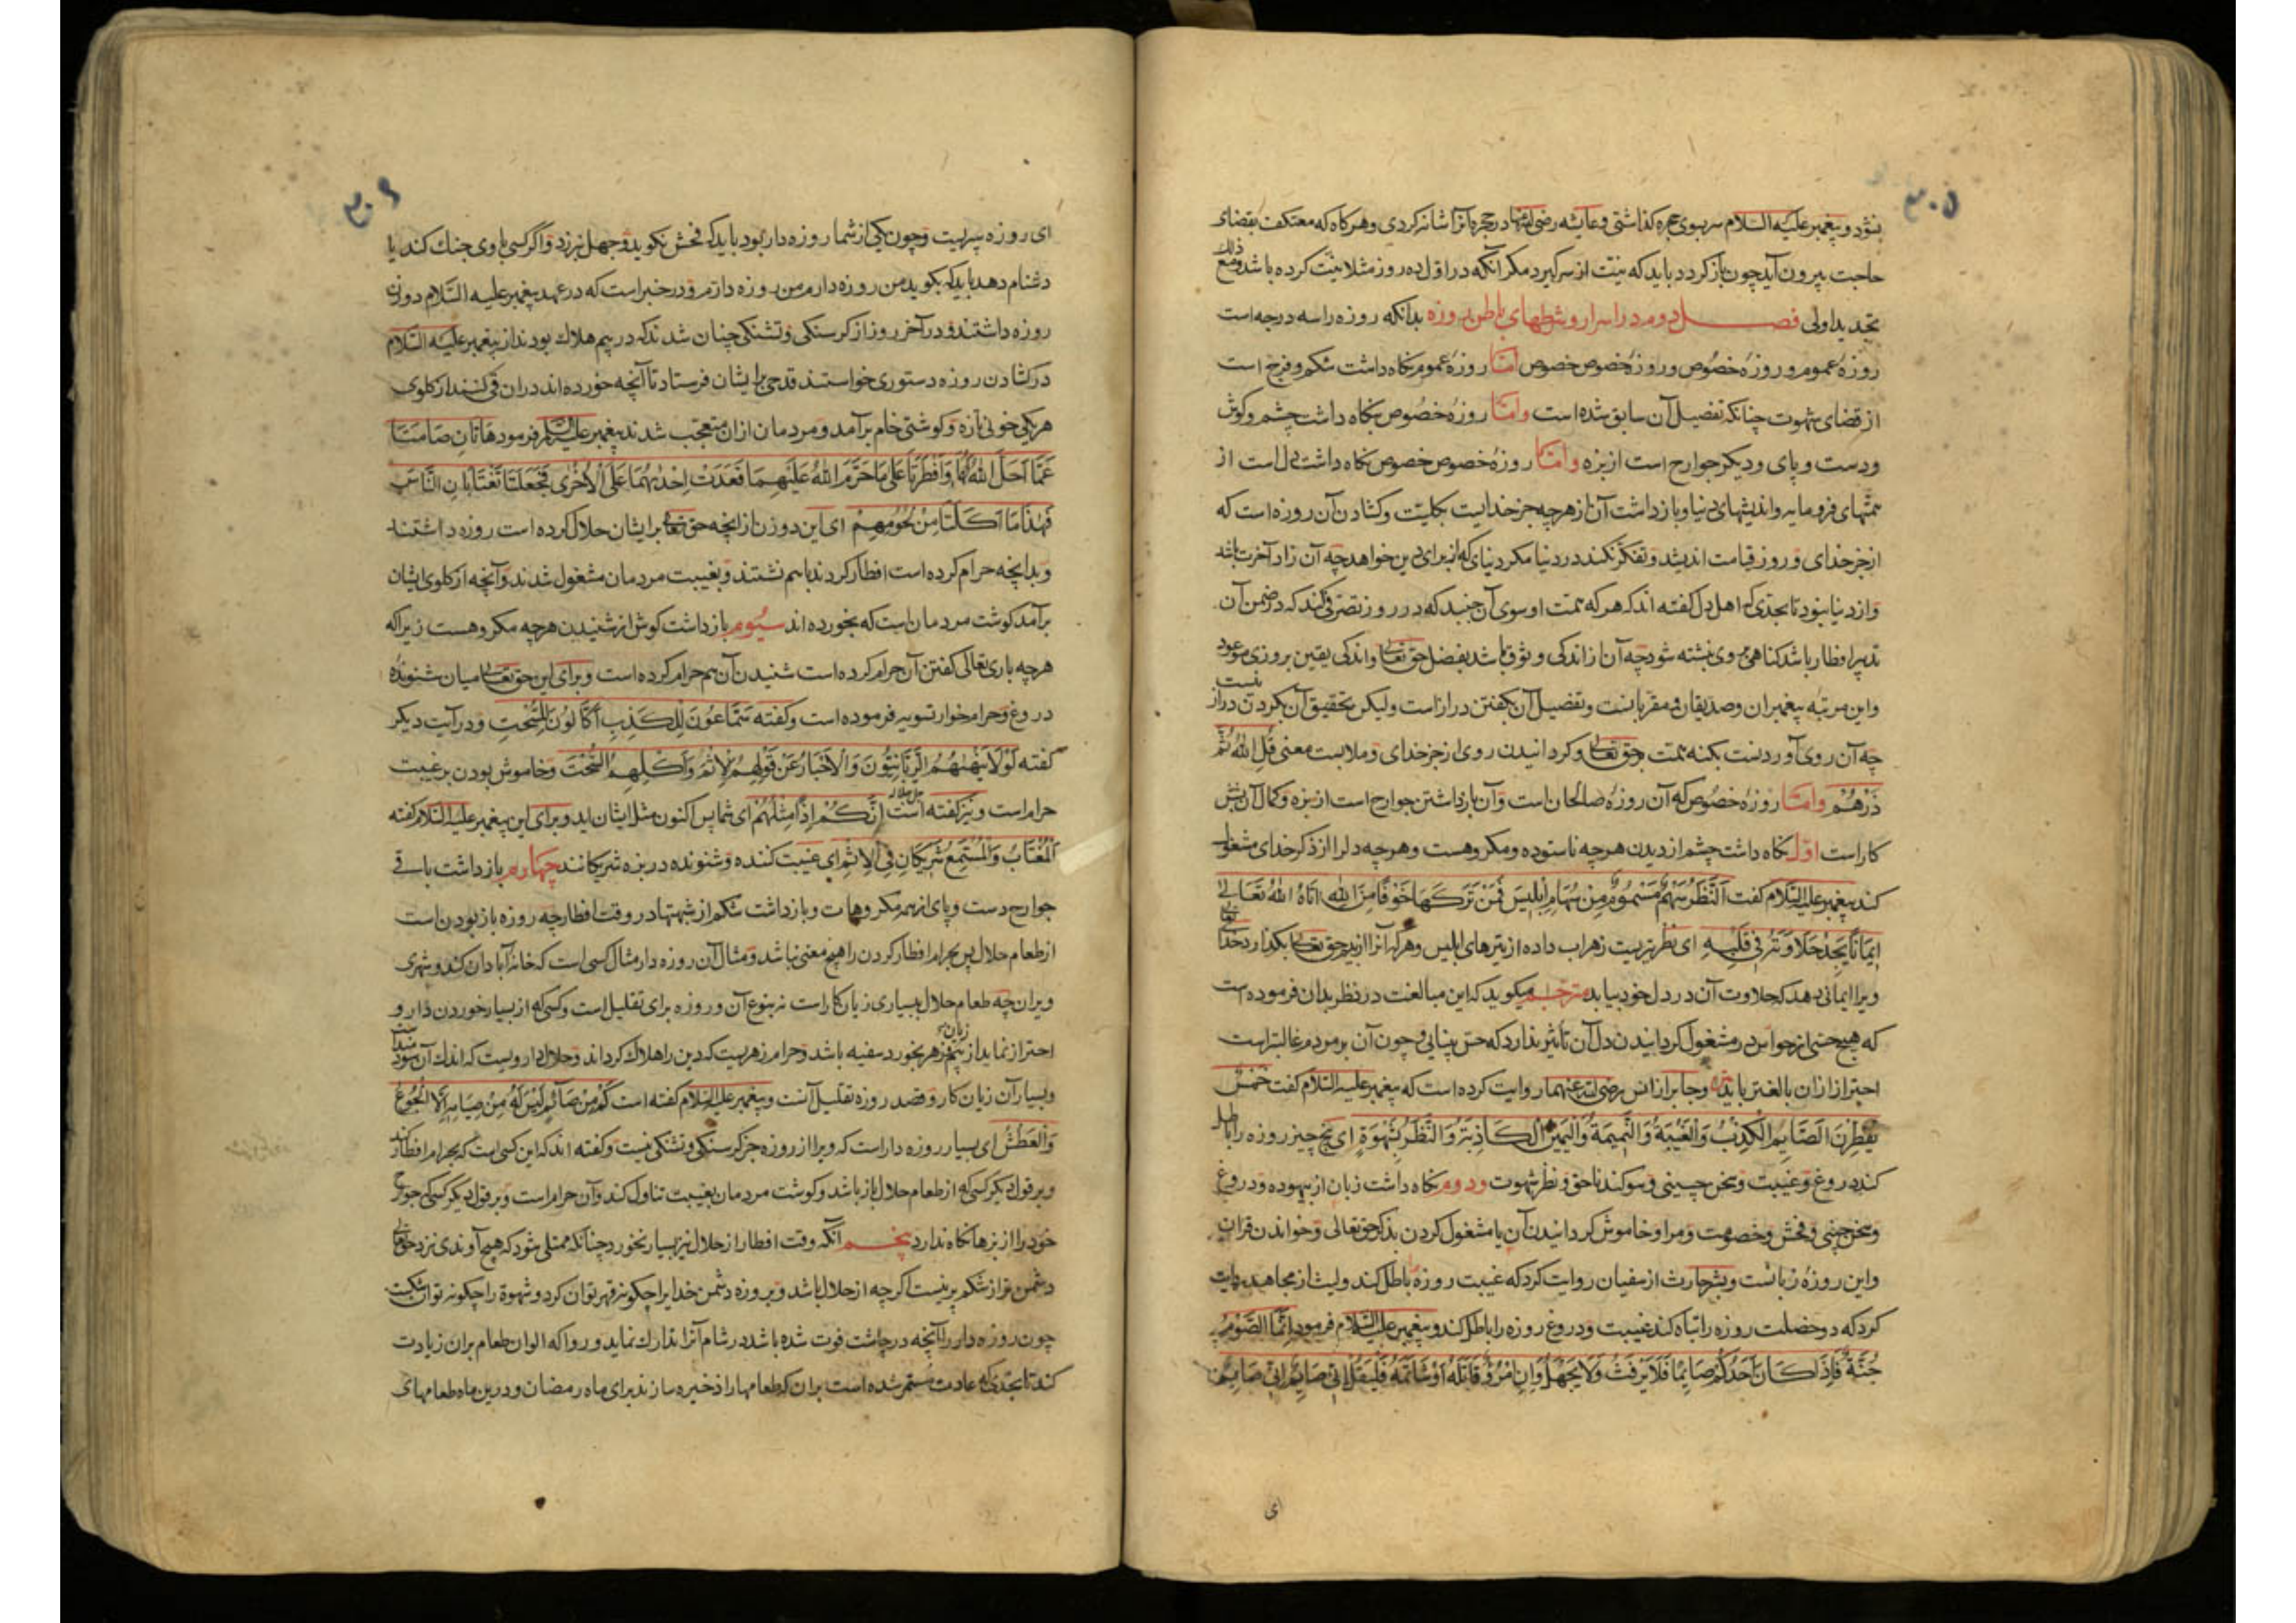 ۳۰۵
بنشود و پیغمبر علیه السلام سر بسوی حجره کذاشتی و عایشه رضی الله عنها در حجره بانرا شانه کردی و هرکاه که معتکف بقضای
حاجت بیرون آید چون بازکردد باید که نیت از سرکیرد مکر آنکه در اول ده روز مثلا نیت کرده باشد ومع ذلك
تجدید اولی فصل دوم در اسرار و شرطهای باطن روزه بدانکه روزه را سه درجه است
روزهٔ عموم و روزهٔ خصوص و روزهٔ خصوص خصوص اما روزهٔ عموم نکاه داشت شکم و فرج است
از قضای شهوت چنانکه تفصیل آن سابق شده است واما روزهٔ خصوص نکاه داشت چشم و کوش
ودست و پای و دیکر جوارح است از بزه واما روزهٔ خصوص خصوص نکاه داشت دل است از
همتهای فرومایه و اندیشهای دنیا و بازداشت آن از هرچه جز خدایست بکلیت و کشادن آن روزه است که
از جز خدای و روز قیامت اندیشد و تفکر نکند در دنیا مکر دنیای که از برای دین خواهد چه آن زاد آخرت باشد
واز دنیا نبود تا بحدی که اهل دل کفته اند که هر که همت او سوی آن جنبد که در روز تصرفی کند که در ضمن آن
تدبیر افطار باشد کناهی بر وی نبشته شود چه آن از اندکی وثوق باشد بفضل حق تعالی و اندکی یقین بروزی موعود
واین مرتبه پیغمبران و صدیقان و مقربانست و تفصیل آن بکفتن دراز است ولیکن تحقیق آن بکردن دراز نیست
چه آن روی آوردنست بکنه همت بر حق تعالی و کردانیدن روی از جز خدای و ملابست معنی قُلِ اللهُ ثُمَّ
ذَرْهُمْ واما روزهٔ خصوص که آن روزهٔ صالحان است و آن بازداشتن جوارح است از بزه و کمال آن بشش
کار است اول نکاه داشت چشم از دیدن هرچه ناستوده و مکروهست و هرچه دل را از ذکر خدای مشغول
کند پیغمبر علیه السلام کفت اَلنَّظَرُ سَهْمٌ مَسْمُومٌ مِنْ سِهَامِ اِبْلِیسَ فَمَنْ تَرَکَهَا خَوْفًا مِنَ اللهِ اٰتَاهُ اللهُ تَعَالیٰ
اِیمَانًا یَجِدُ حَلَاوَتَهُ فِی قَلْبِهِ ای نظر تیریست زهراب داده از تیرهای ابلیس و هر که آنرا از بیم حق تعالی بکذارد خدا تعالی
ویرا ایمانی دهد که حلاوت آن در دل خود بیابد مترجم میکوید که این مبالغت در نظر بدان فرموده است
که هیچ حسی از حواس در مشغول کردانیدن دل آن تأثیر ندارد که حس بینایی و چون آن بر مردم غالبتراست
احتراز ازان بالغتر باید وجابر از انس رضی الله عنهما روایت کرده است که پیغمبر علیه السلام کفت خَمْسٌ
یُفَطِّرْنَ الصَّایِمَ الْکِذْبُ وَالْغِیبَةُ وَالنَّمِیمَةُ وَالْیَمِینُ الْکَاذِبَةُ وَالنَّظَرُ بِشَهْوَةٍ ای پنج چیز روزه را باطل
کند دروغ و غیبت و سخن چینی و سوکند ناحق و نظر شهوت ودوم نکاه داشت زبان از بیهوده و دروغ
وسخن چینی و فحش و خصومت و مرا و خاموش کردانیدن آن یا مشغول کردن بذکر حق تعالی و خواندن قران
واین روزهٔ زبانست وبشر حارث از سفیان روایت کرد که غیبت روزه باطل کند ولیث از مجاهد روایت
کرد که دو خصلت روزه را تباه کند غیبت و دروغ روزه را باطل کند وپیغمبر علیه السلام فرمود اِنَّمَا الصَّوْمُ
جُنَّةٌ فَاِذَا کَانَ اَحَدُکُمْ صَایِمًا فَلَا یَرْفَثْ وَلَا یَجْهَلْ وَاِنِ امْرُؤٌ قَاتَلَهُ اَوْ شَاتَمَهُ فَلْیَقُلْ اِنِّی صَایِمٌ اِنِّی صَایِمٌ
ای
۳۰۶
ای روزه سپریست و چون یکی از شما روزه دار بود باید که فحش نکوید و جهل نورزد و اگر کسی با وی جنك کند یا
دشنام دهد باید که بکوید من روزه دارم من روزه دارم ودر خبر است که در عهد پیغمبر علیه السلام دو زن
روزه داشتند و در آخر روز از کرسنکی و تشنکی چنان شدند که در بیم هلاك بودند از پیغمبر علیه السلام
در کشادن روزه دستوری خواستند قدحی بر ایشان فرستاد تا آنچه خورده اند دران قی کنند از کلوی
هر یکی خونی تازه و کوشتی خام برآمد و مردمان ازان متعجب شدند پیغمبر علیه السلام فرمود هَاتَانِ صَامَتَا
عَمَّا اَحَلَّ اللهُ لَهُمَا وَاَفْطَرَتَا عَلیٰ مَا حَرَّمَ اللهُ عَلَیْهِمَا قَعَدَتْ اِحْدٰیهُمَا عَلَی الْاُخْرٰی فَجَعَلَتَا تَغْتَابَانِ النَّاسَ
فَهٰذَا مَا اَکَلَتَا مِنْ لُحُومِهِمْ ای این دو زن از انچه حق تعالی برایشان حلال کرده است روزه داشتند
وبدانچه حرام کرده است افطار کردند باهم نشستند و بغیبت مردمان مشغول شدند و آنچه از کلوی ایشان
برآمد کوشت مردمان است که بخورده اند سیوم بازداشت کوش از شنیدن هرچه مکروهست زیرا که
هرچه باری تعالی کفتن آن حرام کرده است شنیدن آن هم حرام کرده است و برای این حق تعالی میان شنوندهٔ
دروغ و حرامخوار تسویه فرموده است و کفته سَمَّاعُونَ لِلْکَذِبِ اَکَّالُونَ لِلسُّحْتِ ودر آیت دیکر
کفته لَوْلَا یَنْهٰیهُمُ الرَّبَّانِیُّونَ وَالْاَحْبَارُ عَنْ قَوْلِهِمُ الْاِثْمَ وَاَکْلِهِمُ السُّحْتَ وخاموش بودن بر غیبت
حرام است و نیز کفته است جل جلاله اِنَّکُمْ اِذًا مِثْلُهُمْ ای شما پس اکنون مثل ایشان اید و برای این پیغمبر علیه السلام کفته
اَلْمُغْتَابُ وَالْمُسْتَمِعُ شَرِیکَانِ فِی الْاِثْمِ ای غیبت کننده و شنونده در بزه شریکانند چهارم بازداشت باقی
جوارح دست و پای از همه مکروهات و بازداشت شکم از شبهتها در وقت افطار چه روزه باز بودن است
از طعام حلال پس بحرام افطار کردن را هیچ معنی نباشد و مثال آن روزه دار مثال کسی است که خانهٔ آبادان کند و شهری
ویران چه طعام حلال ببسیاری زیان کار است نه بنوع آن و روزه برای تقلیل است و کسی که از بسیار خوردن دارو
احتراز نماید از بیم زیان زهر بخورد سفیه باشد و حرام زهریست که دین را هلاك کرداند و حلال دارویست که اندك آن سودمند است
وبسیار آن زیان کار و قصد روزه تقلیل آنست و پیغمبر علیه السلام کفته است کَمْ مِنْ صَائِمٍ لَیْسَ لَهُ مِنْ صِیَامِهِ اِلَّا الْجُوعُ
وَالْعَطَشُ ای بسیار روزه دار است که ویرا از روزه جز کرسنکی و تشنکی نیست و کفته اند که این کسی است که بحرام افطار کند
وبر قول دیکر کسی که از طعام حلال باز باشد و کوشت مردمان بغیبت تناول کند و آن حرام است و بر قول دیکر کسی که جوارح
خود را از بزها نکاه ندارد پنجم آنکه وقت افطار از حلال نیز بسیار نخورد چنانکه ممتلی شود که هیچ آوندی نزد حق تعالی
دشمن تر از شکم پر نیست اکرچه از حلال باشد و بروزه دشمن خدایرا چکونه قهر توان کرد و شهوة را چکونه توان شکست
چون روزه دار را آنچه در چاشت فوت شده باشد در شام آنرا تدارك نماید و روا که الوان طعام بران زیادت
کند تا بحدی که عادت مستمر شده است بران که طعامها را ذخیره سازند برای ماه رمضان و درین ماه طعامهای